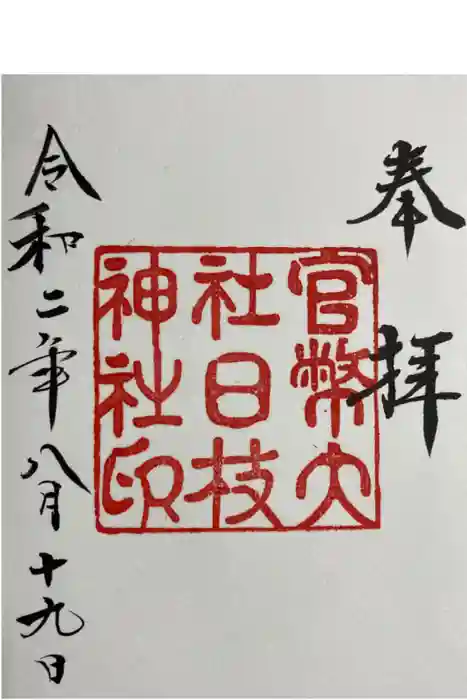 奉拝
官幣大
社日枝
神社印
令和二年八月十九日